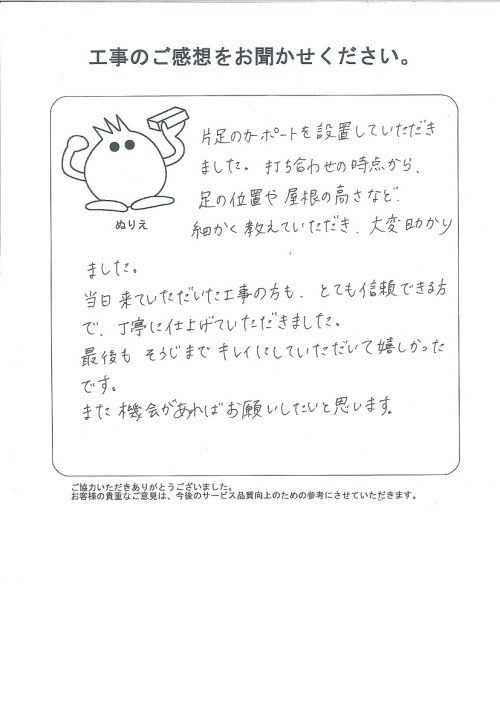 工事のご感想をお聞かせください。
片足のカーポートを設置していただき
ました。打ち合わせの時点から、
足の位置や屋根の高さなど、
細かく教えていただき、大変助かり
ぬりえ
ました。
当日来ていただいた工事の方も、とても信頼できる方
で、丁寧に仕上げていただきました。
最後もそうじまでキレイにしていただいて嬉しかった
です。
また機会があればお願いしたいと思います。
ご協力いただきありがとうございました。
お客様の貴重なご意見は、今後のサービス品質向上のための参考にさせていただきます。